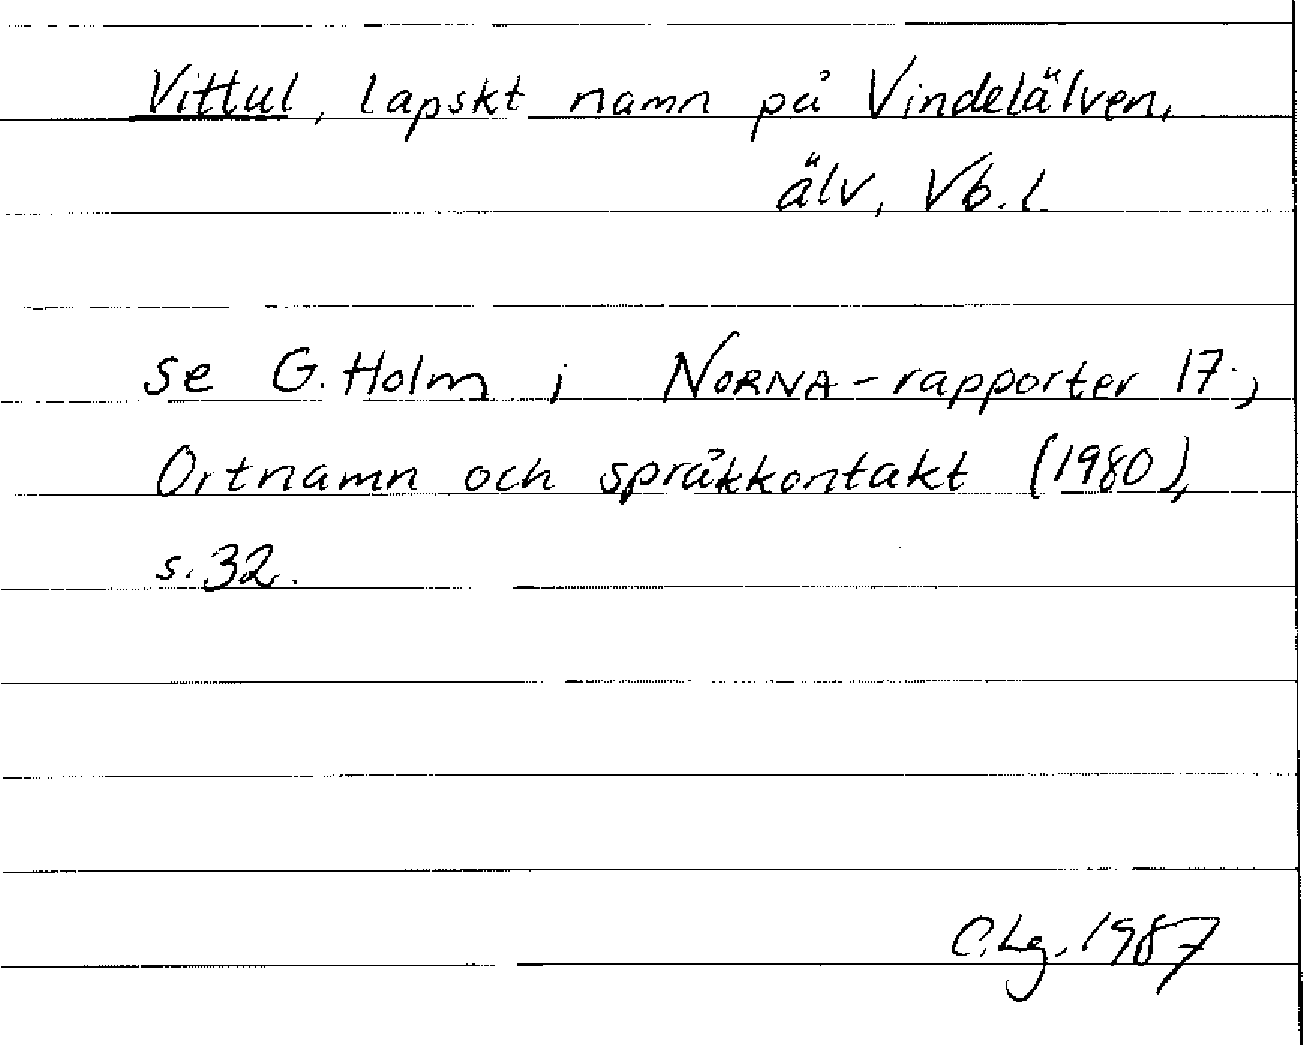 Vittul, lapskt namn på Vindelälven,
älv, Vb. l
se G. Holm i NORNA-rapporter 17,
Ortnamn och språkkontakt (1980),
s. 32.
C.Lg. 1987